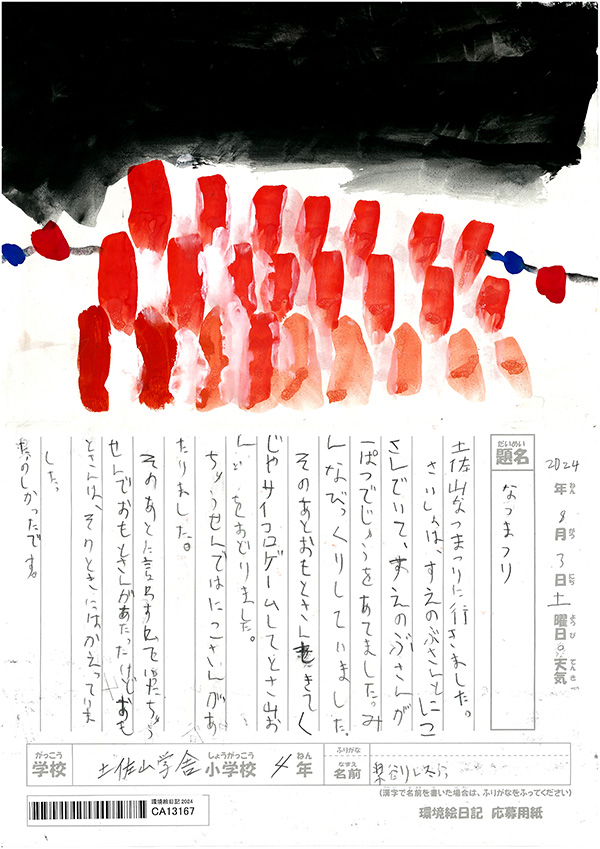 2024年8月3日土曜日 天気
ねん がつ にち ようび てんき
だいめい
題名
なつまつり
土佐山なつまつりに行きました。
さいしょは、すえのぶさんとにこ
さんでいて、すえのぶさんが
いっぱつでじょうをあてました。み
んなびっくりしていました。
そのあとおもとさんきてく
じやサイコロゲームしてとさ山お
んどをおどりました。
ちゅうせんではにこさんがあ
たりました。
そのあとに言うすんで
せんでおもとさんがあたったけどおも
とさんは、そのときにはかえっていま
した。
たのしかったです。
がっこう
学校
土佐山学舎
しょうがっこう
小学校
4
ねん
年
ふりがな
なまえ
名前
(漢字で名前を書いた場合は、ふりがなをふってください)
環境絵日記2024
CA13167
環境絵日記 応募用紙